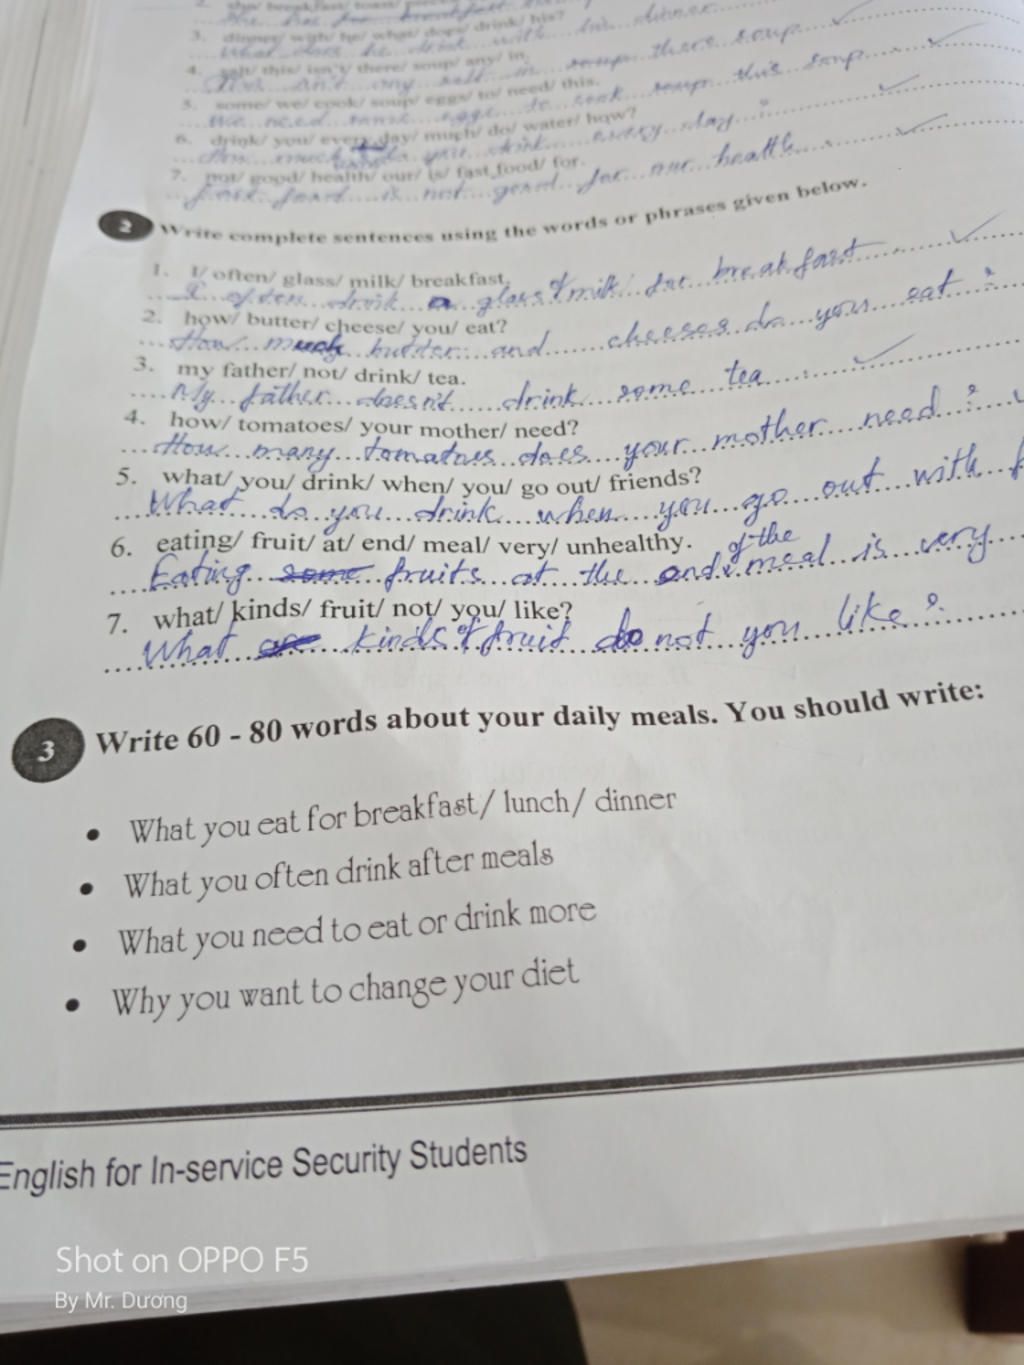 3. dinner/ with/ he/ what/ does/ drink/ his?
What does he drink with his dinner
4. salt/ this/ isn't/ there/ soup/ any/ in.
any salt in soup there soup
5. some/ we/ cook/ soup/ eggs/ to/ need/ this.
We need some eggs to cook soup this soup
6. drink/ you/ every day/ much/ do/ water/ how?
How much do you drink every day ?
7. not/ good/ health/ our/ is/ fast food/ for.
fast food is not good for our health
2 Write complete sentences using the words or phrases given below.
1. I/ often/ glass/ milk/ breakfast.
I often drink a glass of milk for breakfast
2. how/ butter/ cheese/ you/ eat?
How much butter and cheeses do you eat ?
3. my father/ not/ drink/ tea.
My father doesn't drink some tea
4. how/ tomatoes/ your mother/ need?
How many tomatoes does your mother need ?
5. what/ you/ drink/ when/ you/ go out/ friends?
What do you drink when you go out with f
6. eating/ fruit/ at/ end/ meal/ very/ unhealthy.
Eating some fruits at the end of the meal is very
7. what/ kinds/ fruit/ not/ you/ like?
What are kinds of fruit do not you like ?
3 Write 60 - 80 words about your daily meals. You should write:
• What you eat for breakfast/ lunch/ dinner
• What you often drink after meals
• What you need to eat or drink more
• Why you want to change your diet
English for In-service Security Students
Shot on OPPO F5
By Mr. Dương